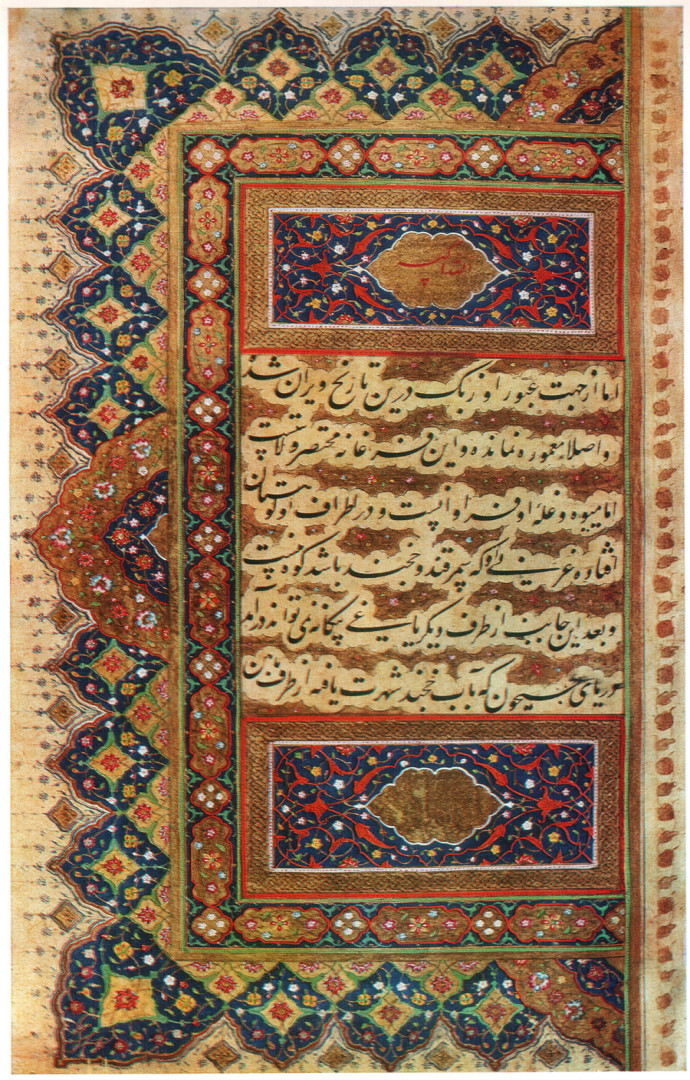 اما از جهت عبور اوزبک درین تاریخ ویران شد
و اصلا معموره نمانده و این فرغانه مختصر ولایتیست
اما میوه و غله او فراوانست و در اطراف او کوهستان
افتاده غربی او که سمرقند و خجند باشد کوه نیست
و بعد این جانب از طرف دیگر یاغی بیگانه نمی تواند درآمد
دریای سیحون که بآب خجند شهرت یافته از طرف مابین